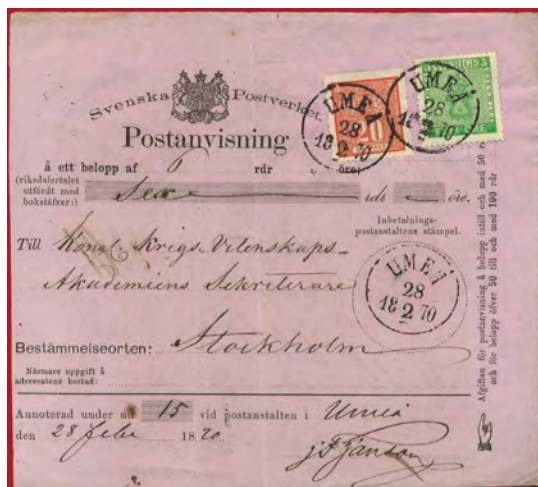 Svenska Postverket.
Postanvisning
UMEÅ
28
18 2 70
20
UMEÅ
28
18 2 70
å ett belopp af 6 rdr öre
(riksdalertalet
utfördt med
bokstäfver:) Sex rdr — öre.
Inbetalnings-
postanstaltens stämpel.
Till Kongl. Krigs Vetenskaps-
Akademiens Sekreterare
UMEÅ
28
18 2 70
Bestämmelseorten: Stockholm
Närmare uppgift å
adressatens bostad:
Annoterad under n:o 15 vid postanstalten i Umeå
den 28 febr 1870
Janson
Afgiften för postanvisning å belopp intill och med 50 r
och för belopp öfver 50 till och med 100 rdr